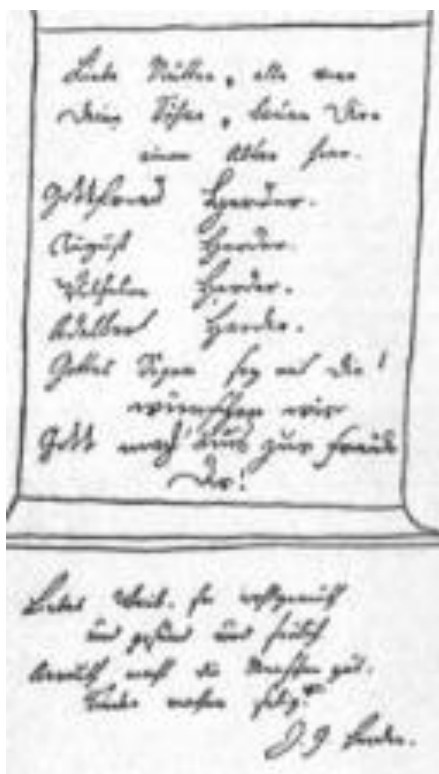 Liebe Mutter, alle vier
Deine Söhne, bauen Dir
einen Altar hier.
Gottfried Herder.
August Herder.
Wilhelm Herder.
Adelbert Herder.
Gottes Segen sey mit Dir!
wünschen wir
Gott mach' uns zur Freude
Dir!
Liebes Weib. wohlgemuth
und gesund und frölich
Armuth macht die Menschen gut.
Liebe machet selig.
J. G. Herder.